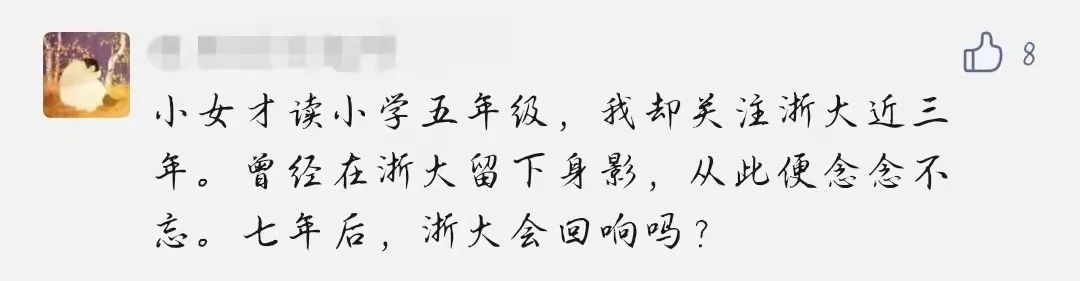 8
小女才读小学五年级，我却关注浙大近三
年。曾经在浙大留下身影，从此便念念不
忘。七年后，浙大会回响吗？